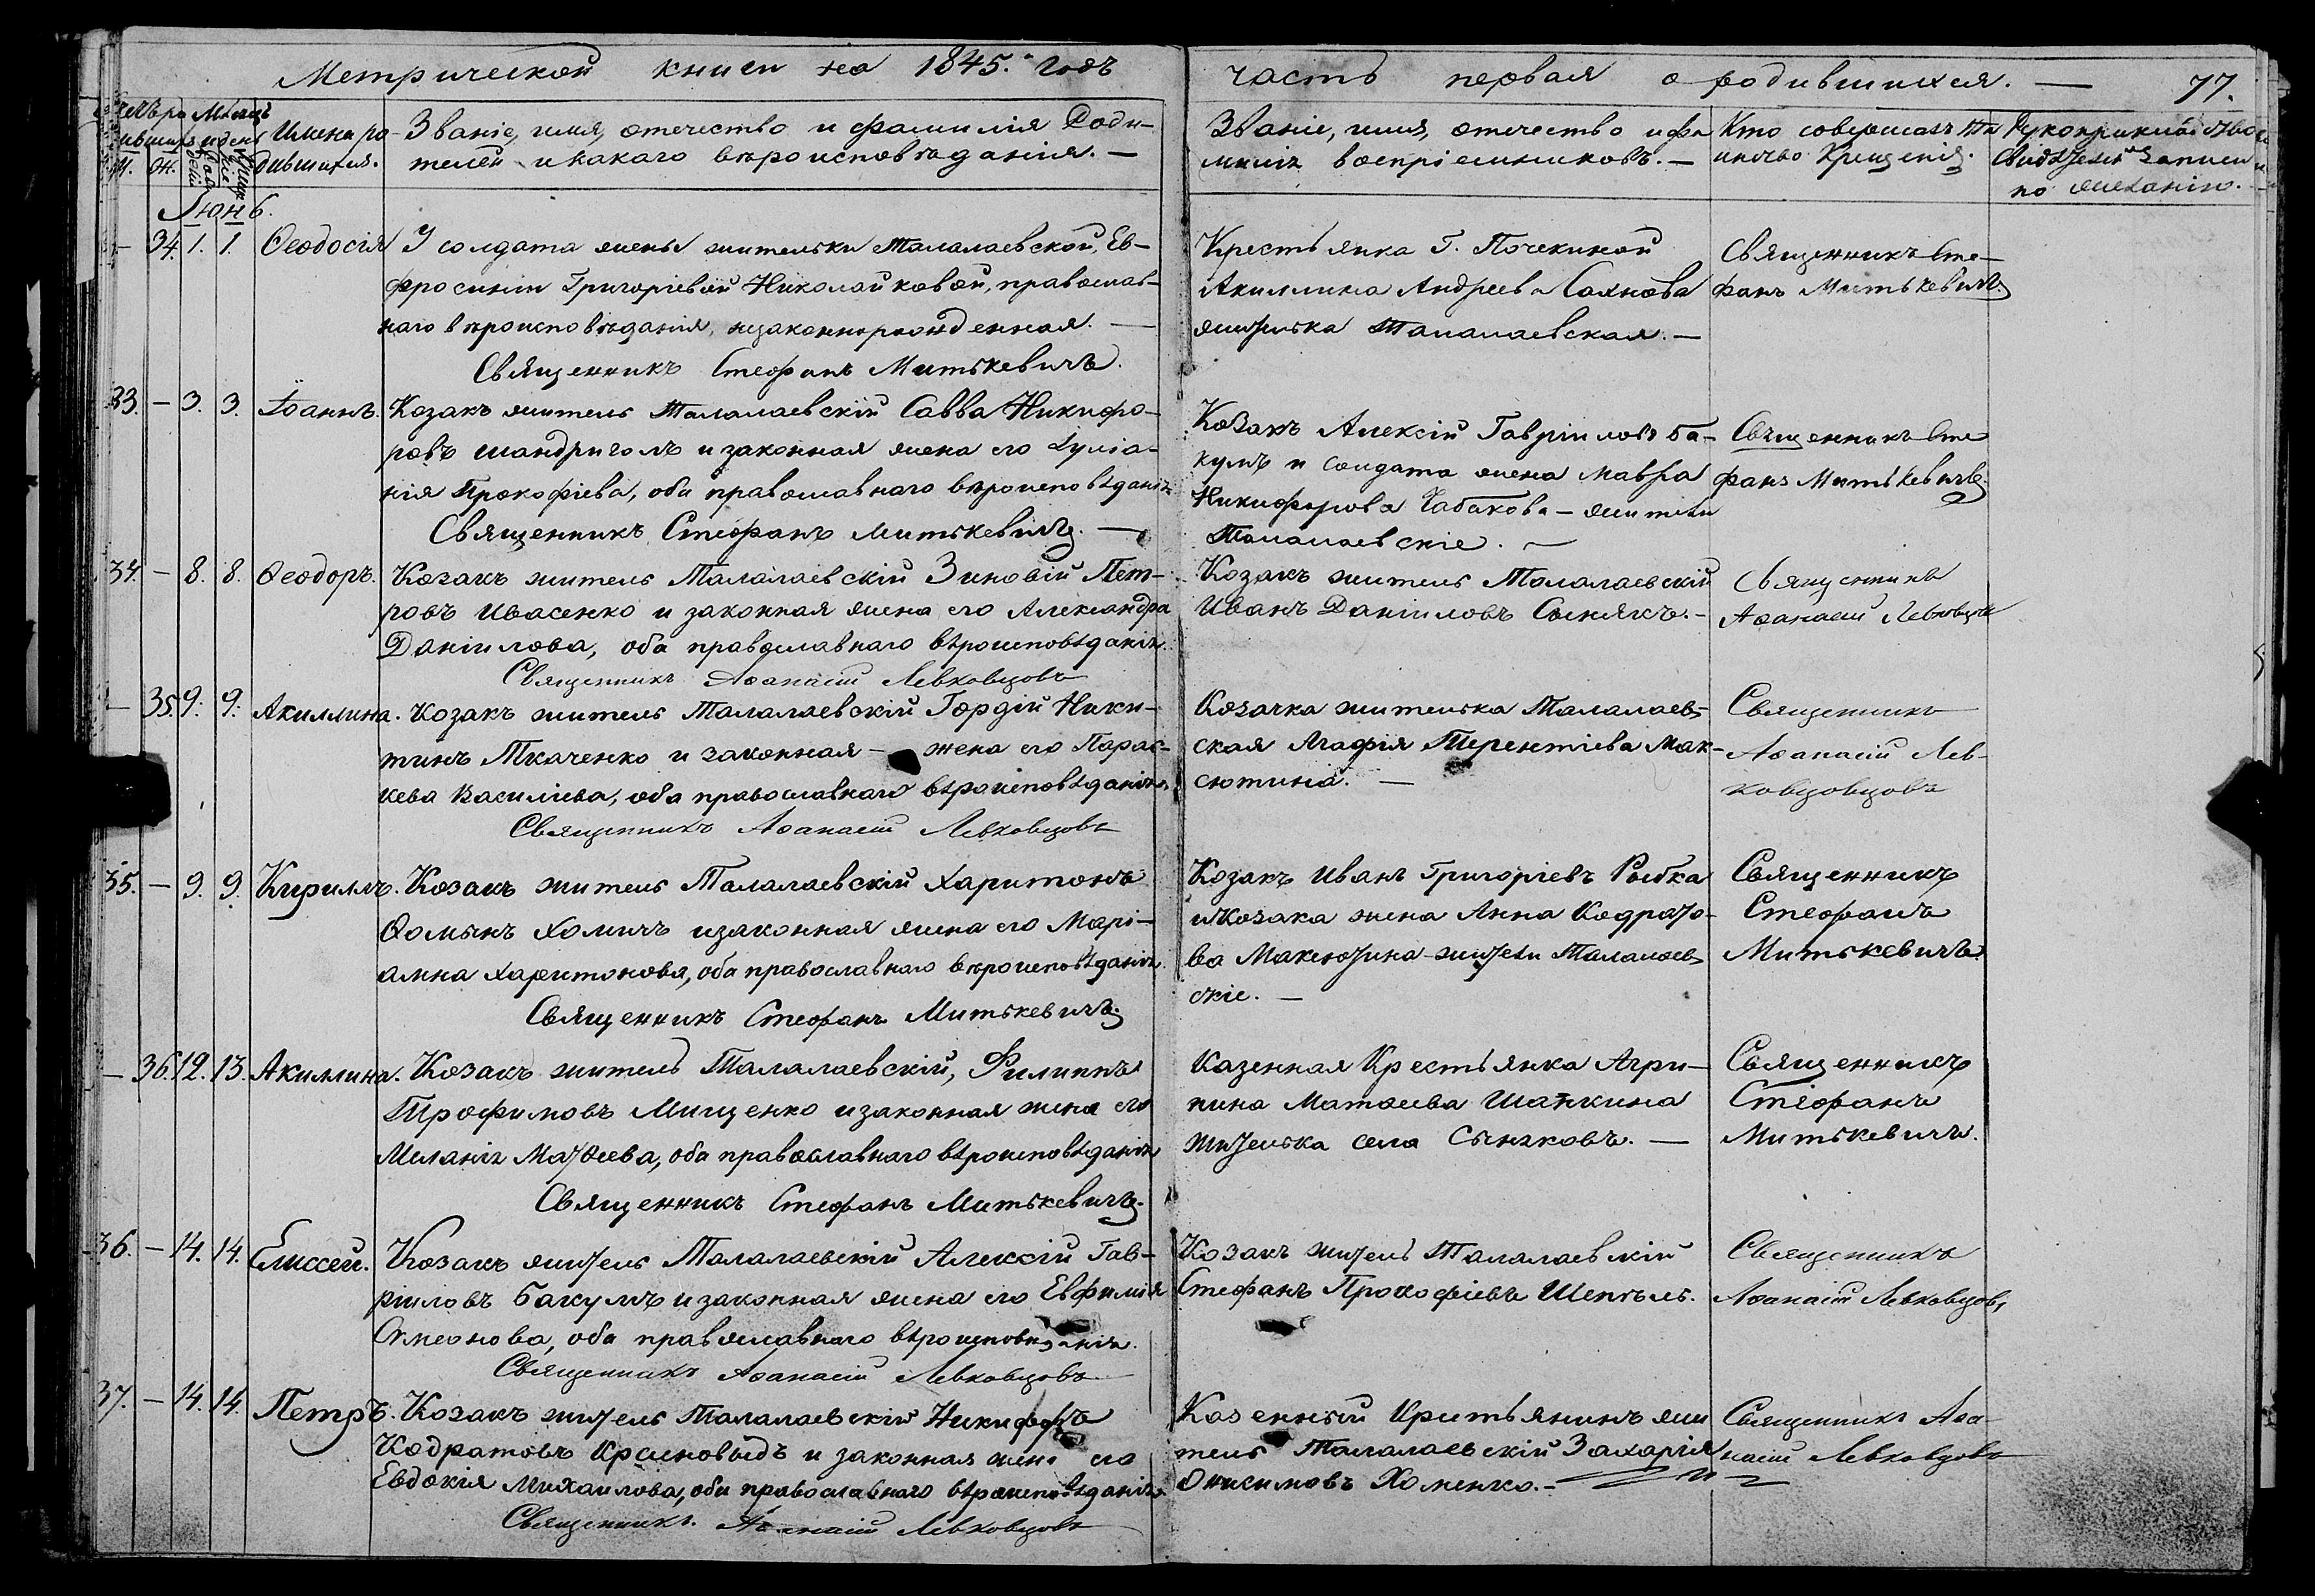 Метрической книги на 1845.й годъ часть первая о родившихся. — 77.
Имена ро-
дившихся.
Званіе, имя, отечество и фамилія Роди-
телей и какаго вѣроисповѣданія. —
Званіе, имя, отечество и фа
милія воспріемниковъ. —
Кто совершалъ Та
инство Крещенія.
по желанію.
Іюнь.
— 34. 1. 1. Ѳеодосія
У солдата жены жительки Талалаевской, Ев-
фросиніи Григоріевой Николайковой, православ-
наго вѣроисповѣданія, незаконнорожденная. —
Священникъ Стефанъ Митькевичъ.
Крестьянка Г. Почекиной
Акилина Андреева Саянова
жителька Талалаевская. —
Священникъ Сте-
фанъ Митькевичъ.
33. — 3. 3. Іоаннъ.
Козакъ житель Талалаевскій Савва Никифо-
ровъ шандриголъ и законная жена его Іуліа-
нія Прокофіева, оба православнаго вѣроисповѣданія
Священникъ Стефанъ Митькевичъ. —
Козакъ Алексій Гавріиловъ Ба-
кумъ и солдата жена Мавра
Никифорова Чабакова — жители
Талалаевскіе. —
Священникъ Сте
фанъ Митькевичъ.
34. — 8. 8. Ѳеодоръ.
Козакъ житель Талалаевскій Зиновій Пет-
ровъ Ивасенко и законная жена его Александра
Даніилова, оба православнаго вѣроисповѣданія.
Священникъ Аѳанасій Левковцовъ
Козакъ житель Талалаевскій
Иванъ Даніиловъ Сынякъ. -
Священникъ
Аѳанасій Левковцовъ
— 35. 9. 9. Акиллина.
Козакъ житель Талалаевскій Гордій Ники-
тинъ Ткаченко и законная — жена его Парас-
кева Василіева, оба православнаго вѣроисповѣданія.
Священникъ Аѳанасій Левковцовъ
Козачка жителька Талалаев-
ская Агафія Терентіева Мак-
сютина. —
Священникъ
Аѳанасій Лев-
ковцовцовъ
35. — 9. 9. Кириллъ.
Козакъ житель Талалаевскій Харитонъ
Ѳоминъ Хомичъ и законная жена его Марі-
амна Харитонова, оба православнаго вѣроисповѣданія.
Священникъ Стефанъ Митькевичъ.
Козакъ Иванъ Григоріевъ Рыбка
и Козака жена Анна Кодрато-
ва Максютина - жители Талалаев-
скіе. —
Священникъ
Стефанъ
Митькевичъ.
— 36. 12. 13. Акиллина.
Козакъ житель Талалаевскій, Филиппъ
Трофимовъ Мищенко и законная жена его
Меланія Матѳеева, оба православнаго вѣроисповѣданія
Священникъ Стефанъ Митькевичъ.
Казенная Крестьянка Агри-
пина Матѳеева Шапкина
жителька села Сыняковъ. —
Священникъ
Стефанъ
Митькевичъ.
36. — 14. 14. Елиссей.
Козакъ житель Талалаевскій Алексій Гав-
ріиловъ Бакумъ и законная жена его Евфимія
Симеонова, оба православнаго вѣроисповѣданія.
Священникъ Аѳанасій Левковцовъ
Козакъ житель Талалаевскій
Стефанъ Прокофіевъ Шепель.
Священникъ
Аѳанасій Левковцовъ
37. — 14. 14. Петръ.
Козакъ житель Талалаевскій Никифоръ
Кодратовъ и законная жена его
Евдокія Михаилова, оба православнаго вѣроисповѣданія
Священникъ. Аѳанасій Левковцовъ
Казенный Крестьянинъ жи
тель Талалаевскій Захарія
Онисимовъ Хоменко. -
Священникъ Аѳа-
насій Левковцовъ